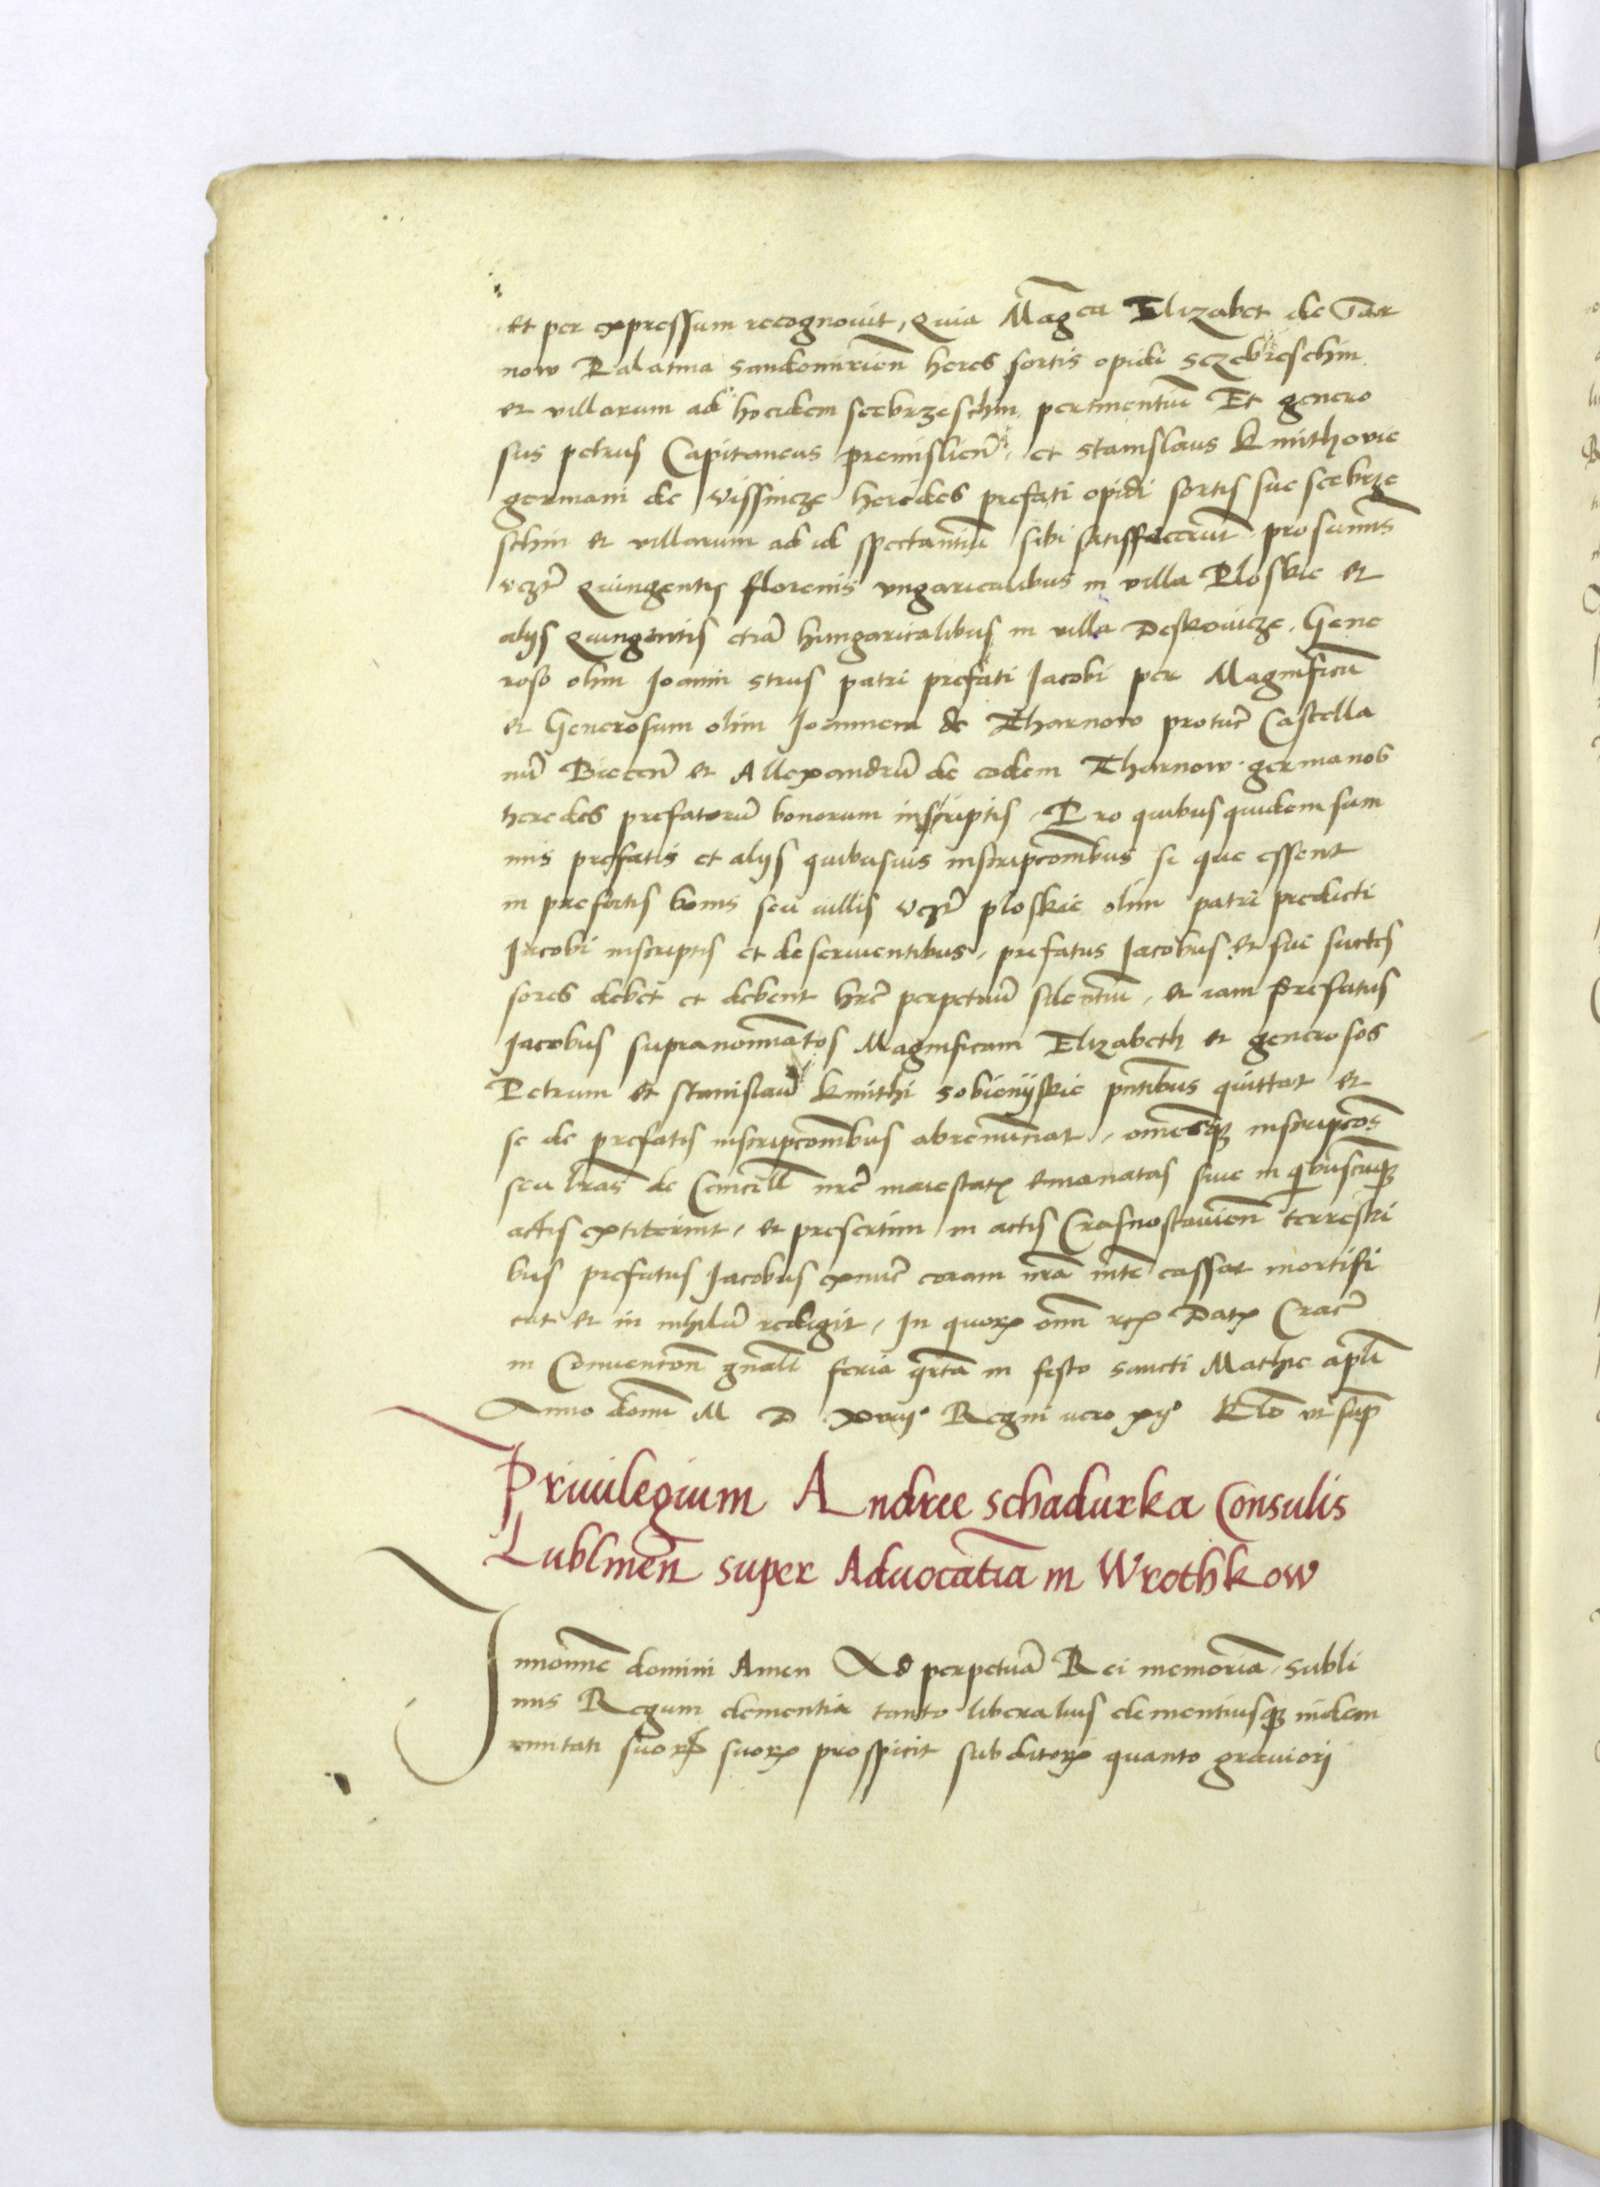 et per expressum recognovit, Quia Magca Elizabet de Tar
now Palatina Sandomirien heres sortis opidi Sczebreschin
et villarum ad hocidem scebrzeschin pertinentiu Et genero
sus petrus Capitaneus premislien et Stanislaus Kmithovie
germani de Vissnicze heredes prefati opidi sortis sue scebrze
schin et villarum ad id spectantiu sibi satisffecerut pro summis
vczt Quingentis florenis ungaricalibus in villa Ploskie et
alijs Quingentis etia hungaricalibus in villa Deskovicze. Gene
roso olim Joanni Strus patri prefati Jacobi per Magnificu
et Generosum olim Joannem de Tharnow protuc Castella
nu Biecen et Allexandru de eodem Tharnow germanos
heredes prefatoru bonorum inscriptis. Pro quibus quidem sum
mis prefatis et alijs quibusuis inscripcombus si que essent
in prefatis bonis seu villis vczt ploskie olim patri predicti
Jacobi inscriptis et deseruientibus, prefatus Jacobus et sui succes
sores debet et debent hre perpetuu silentiu, et iam Prefatus
Jacobus supranomiatos Magnificam Elizabeth et generosos
Petrum et Stanislau Kmithi Sobienijskie pntibus quittat et
se de prefatis inscripcombus abrenunciat, omesq inscripcoes
seu lras de Cancell nre maiestatis emanatas siue in qbuscuq
actis extiterint, et presertim in actis Crasnostauien terrestri
bus prefatus Jacobus exnuc coram nra mte cassat mortifi
cat et in nihilu redigit, In quorum omn rex Datum Crac
in Convention gnali feria qrta in festo sancti Mathie apli
Anno domi M D xviij Regni vero xijo Relo ut sup
Priuilegium Andree schadurka Consulis
Lublinen super Aduocatia in Wrothkow
In nomine domini Amen Ad perpetua Rei memoria. Subli
mis Regum clementia tanto liberalius clementiusq indem
nnitati suorum suorum prospicit subditorum quanto grauiori